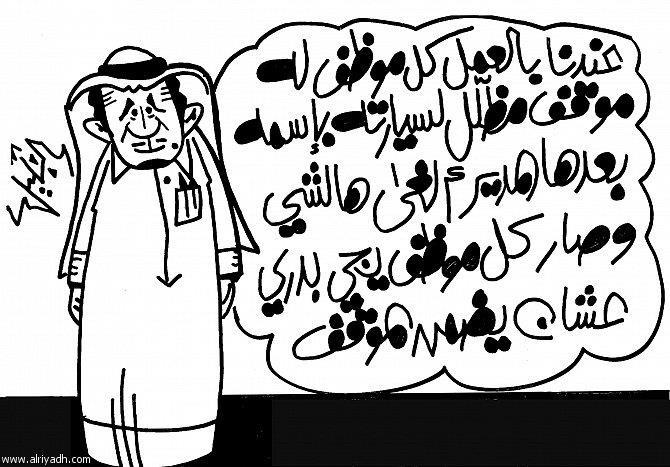 عندنا بالعمل كل موظف له
موقف مظلل لسيارته بإسمه
بعدها المدير ألغى هالشي
وصار كل موظف يجي بدري
عشان يضمن موقف
www.alriyadh.com